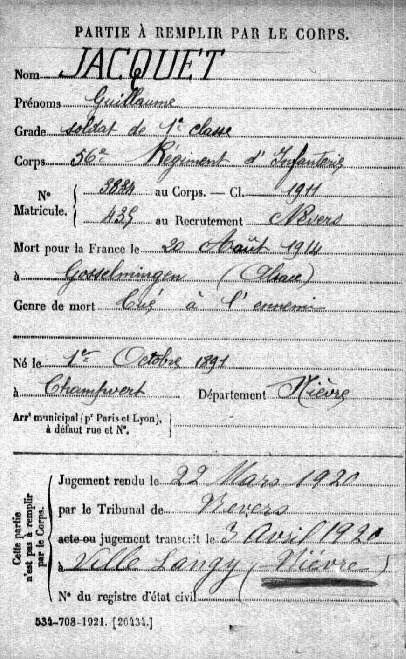 PARTIE À REMPLIR PAR LE CORPS.
Nom JACQUET
Prénoms Guillaume
Grade soldat de 1e classe
Corps 56e Régiment d'Infanterie
N° Matricule. { 3884 au Corps. — Cl. 1911
435 au Recrutement Nevers
Mort pour la France le 20 Août 1914
à Gosselmingen (Alsace)
Genre de mort Tué à l'ennemi
Né le 1er Octobre 1891
à Champvert Département Nièvre
Arrt municipal (pr Paris et Lyon), à défaut rue et N°.
Cette partie n'est pas à remplir par le Corps.
Jugement rendu le 22 Mars 1920
par le Tribunal de Nevers
acte ou jugement transcrit le 3 Avril 1920
à Ville Langy (Nièvre)
N° du registre d'état civil
534-708-1921. [26434.]